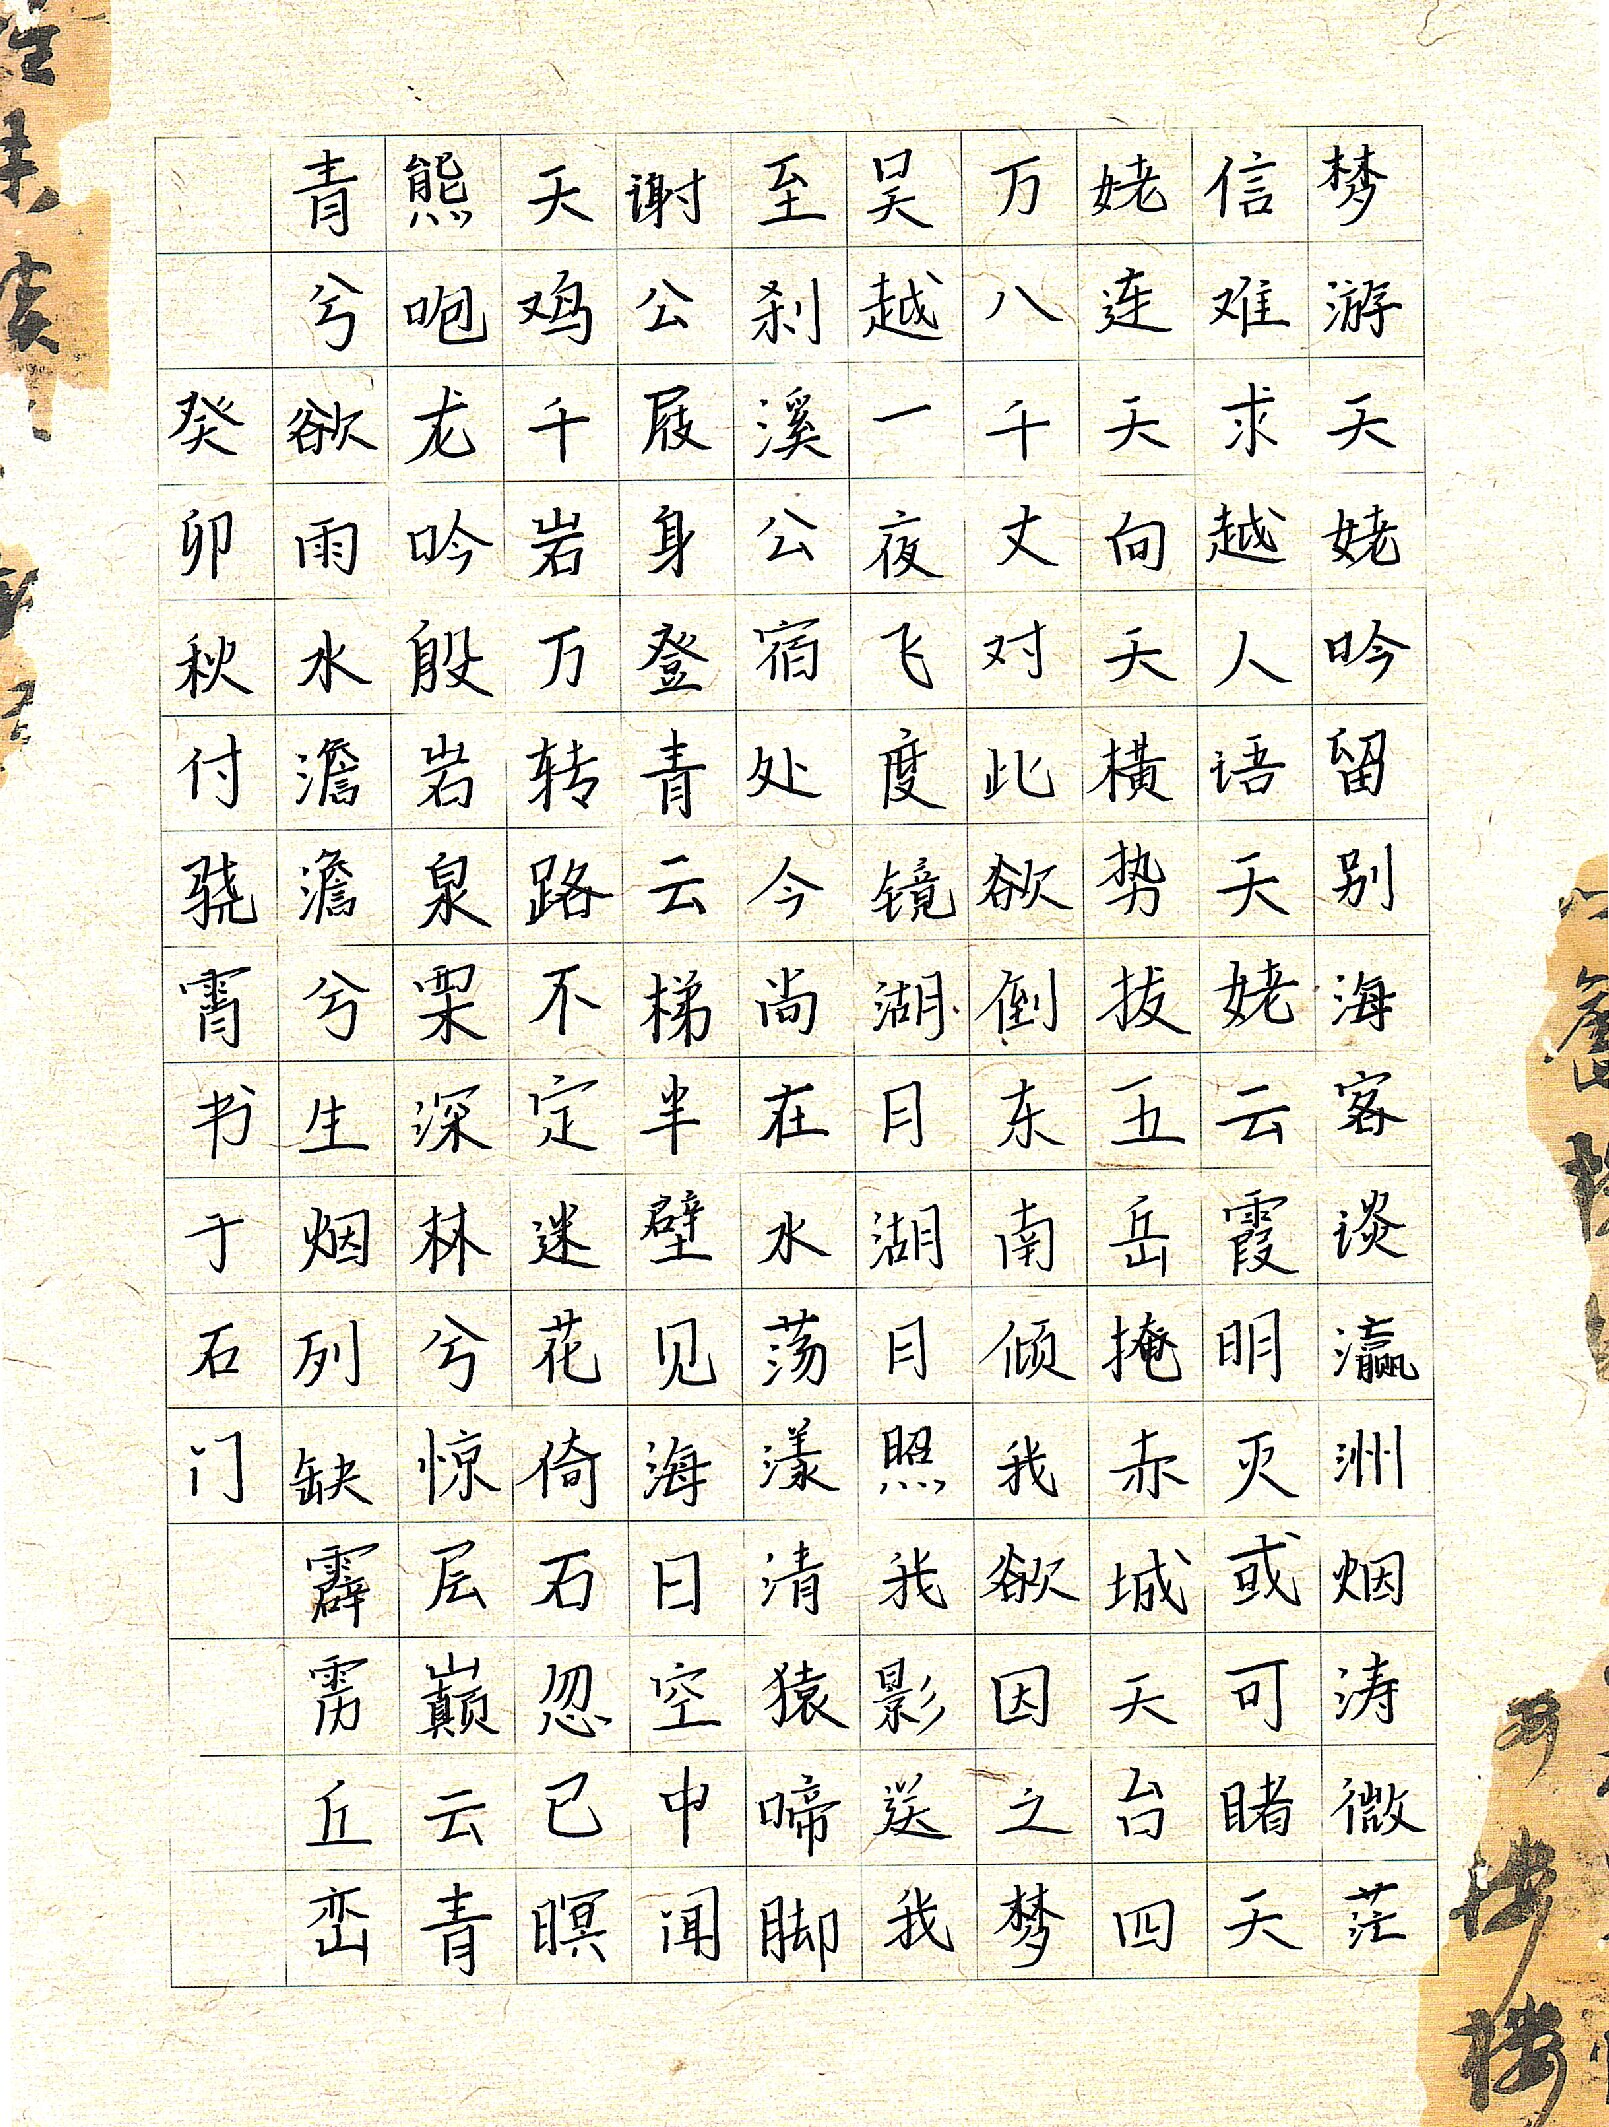 梦游天姥吟留别海客谈瀛洲烟涛微茫
信难求越人语天姥云霞明灭或可睹天
姥连天向天横势拔五岳掩赤城天台四
万八千丈对此欲倒东南倾我欲因之梦
吴越一夜飞度镜湖月湖月照我影送我
至剡溪公宿处今尚在水荡漾清猿啼脚
谢公屐身登青云梯半壁见海日空中闻
天鸡千岩万转路不定迷花倚石忽已暝
熊咆龙吟殷岩泉栗深林兮惊层巅云青
青兮欲雨水澹澹兮生烟列缺霹雳丘峦
癸卯秋付骁霄书于石门